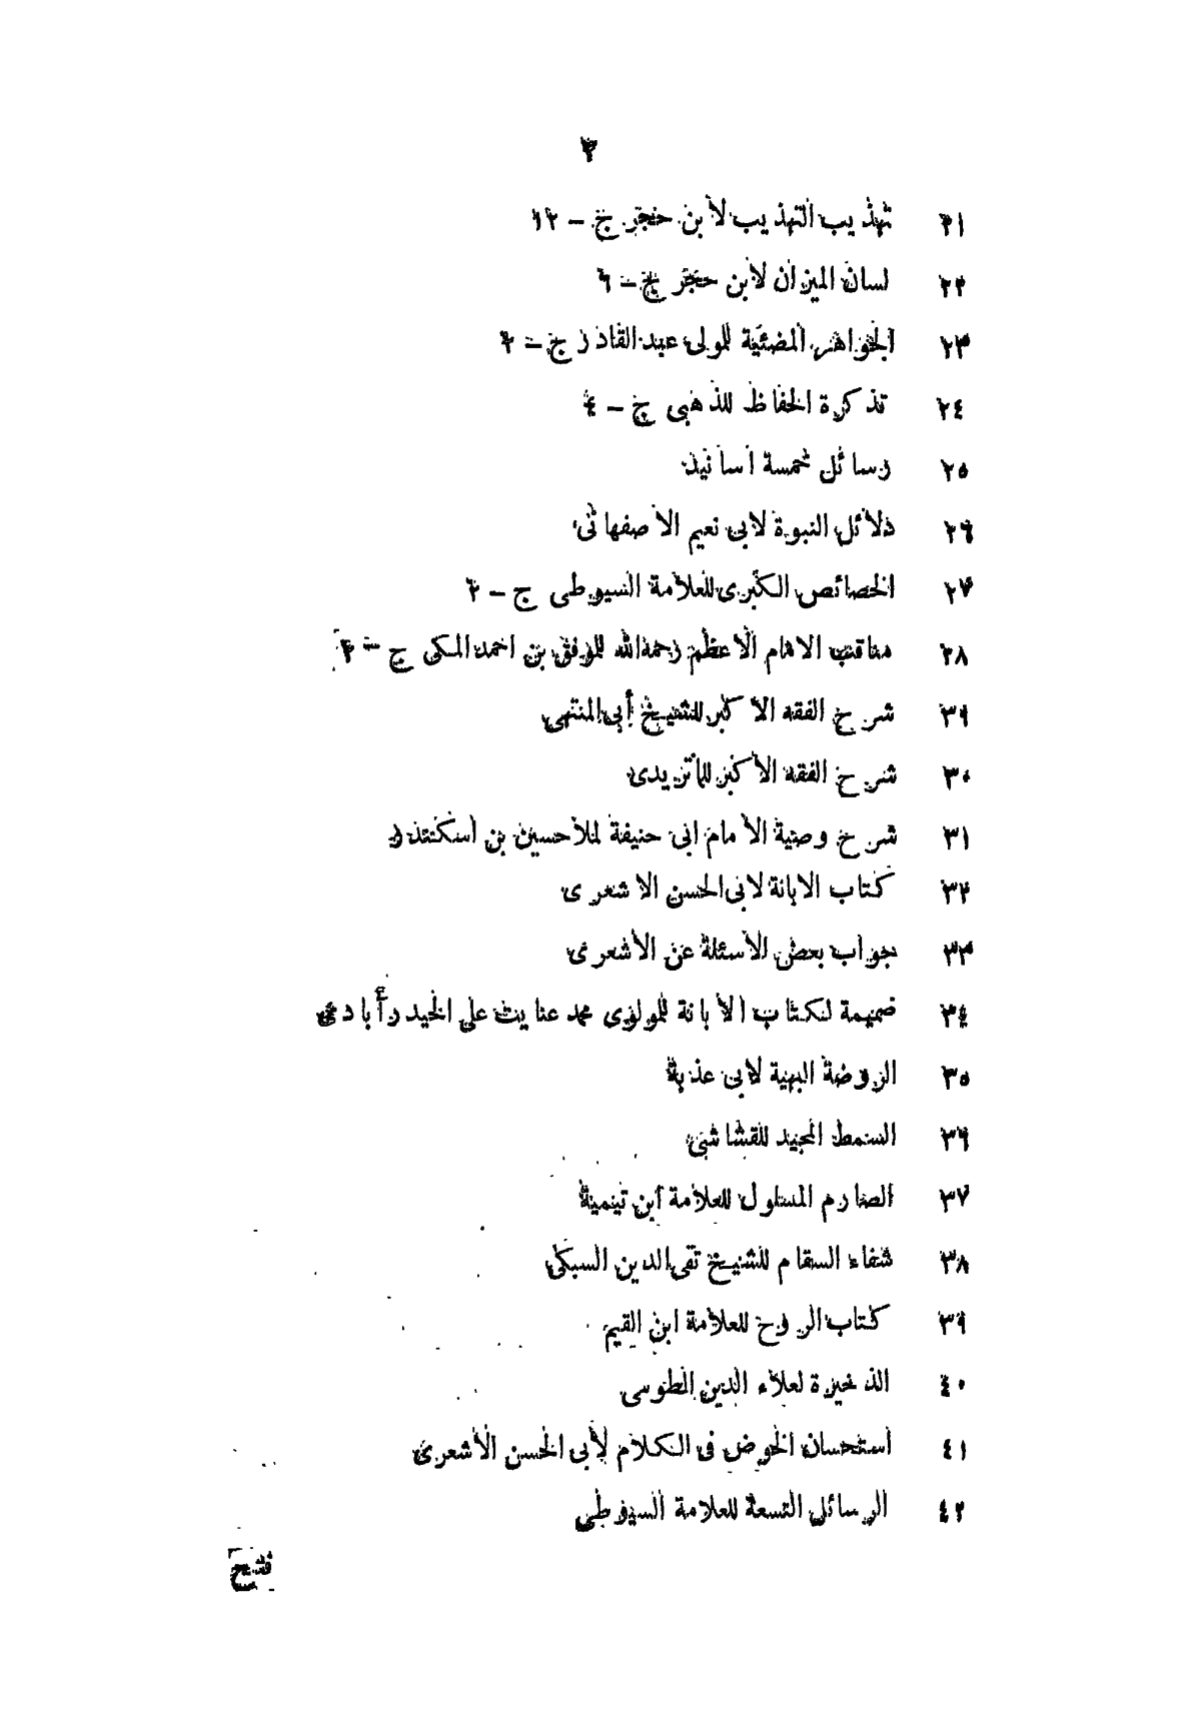 ٢١ تهذيب التهذيب لابن حجر ج – ١٢
٢٢ لسان الميزان لابن حجر ج – ٦
٢٣ الجواهر المضئية للمولى عبد القادر ج – ٢
٢٤ تذكرة الحفاظ للذهبى ج – ٤
٢٥ رسائل خمسة أسانيد
٢٦ دلائل النبوة لابى نعيم الاصفهانى
٢٧ الخصائص الكبرى للعلامة السيوطى ج – ٢
٢٨ مناقب الامام الاعظم رحمه الله للموفق بن احمد المكى ج – ٢
٢٩ شرح الفقه الاكبر للشيخ أبى المنتهى
٣٠ شرح الفقه الأكبر للماتريدى
٣١ شرح وصية الامام ابى حنيفة لملاحسين بن اسكندر
٣٢ كتاب الابانة لابى الحسن الاشعرى
٣٣ جواب بعض الأسئلة عن الأشعرى
٣٤ ضميمة لكتاب الابانة للمولوى محمد عنايت على الحيدرأبادى
٣٥ الروضة البهية لابى عذبة
٣٦ السمط المجيد للقشاشى
٣٧ الصارم المسلول للعلامة ابن تيمية
٣٨ شفاء السقام للشيخ تقى الدين السبكى
٣٩ كتاب الروح للعلامة ابن القيم
٤٠ الذخيرة لعلاء الدين الطوسى
٤١ استحسان الخوض فى الكلام لأبى الحسن الأشعرى
٤٢ الرسائل التسعة للعلامة السيوطى